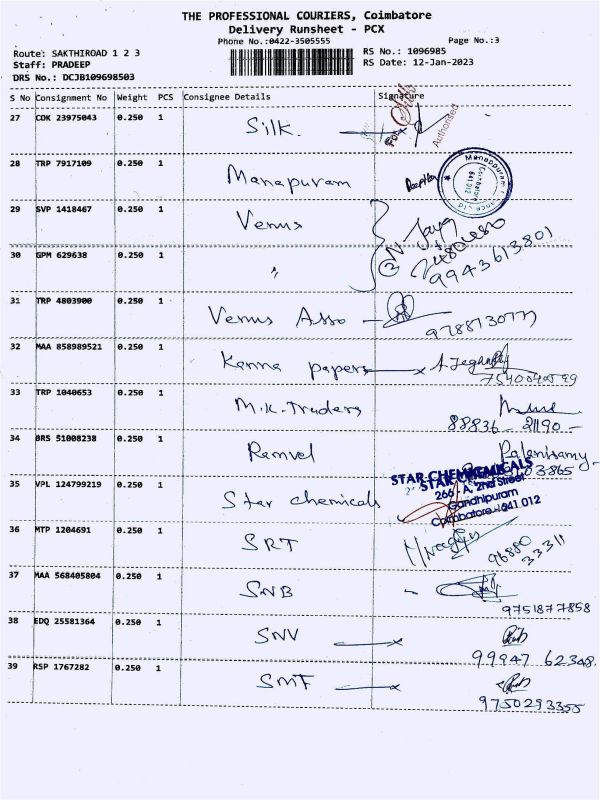 THE PROFESSIONAL COURIERS, Coimbatore
Delivery Runsheet - PCX
Phone No.:0422-3505555 Page No.:3
Route: SAKTHIROAD 1 2 3 RS No.: 1096985
Staff: PRADEEP RS Date: 12-Jan-2023
DRS No.: DCJB109698503
S No Consignment No Weight PCS Consignee Details Signature
27 COK 23975043 0.250 1 Silk. For Authorised
28 TRP 7917109 0.250 1 Manapuram
29 SVP 1418467 0.250 1 Venus
30 GPM 629638 0.250 1 〃 9943613801
31 TRP 4803900 0.250 1 Venus Asso -
32 MAA 858989521 0.250 1 Kanna papers
33 TRP 1040653 0.250 1 M.K. Traders 88836 - 21190 -
34 BRS 51008238 0.250 1 Ramvel Palanisamy
35 VPL 124799219 0.250 1 Star chemicals
STAR CHEMICALS
266 - A, 2nd Street
Gandhipuram
Coimbatore - 641 012
36 MTP 1204691 0.250 1 SRT 96880 33311
37 MAA 568405804 0.250 1 SNB 9751877858
38 EDQ 25581364 0.250 1 SNV 99947 62348.
39 RSP 1767282 0.250 1 SMF 9750293355